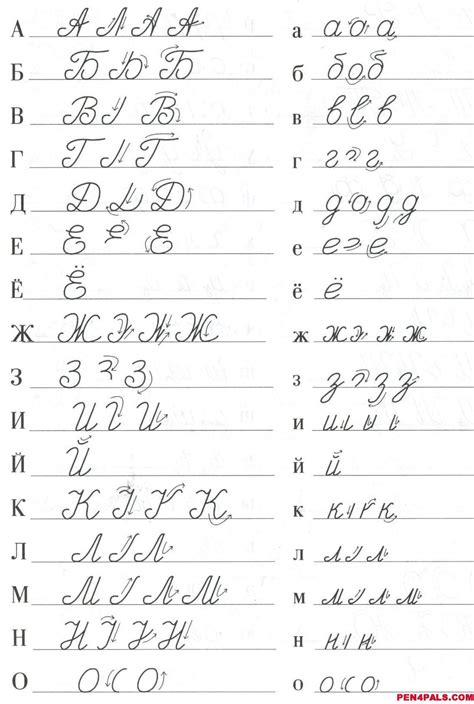 А А А А а а о а
Б Б Б б б о б
В В В в в в
Г Г Г г г г
Д Д Д д д а д д
Е Е Е е е е
Ё Ё ё ё
Ж Ж Ж ж ж ж
З З З з з з з
И И И и и и
Й Й й й
К К К к к к
Л Л Л л л л
М М М м м м
Н Н Н н н н
О О О о о о
PEN4PALS.COM